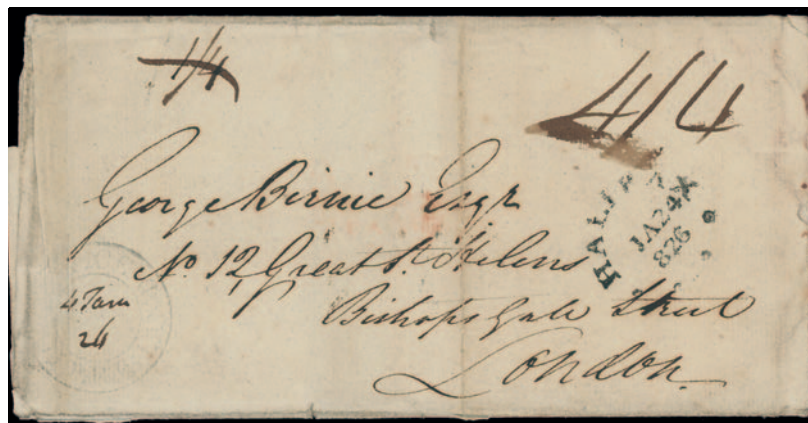 1/4
4/4
George Birnie Esqr
No 12, Great St. Helens
Bishops Gate Street
London
HALIFAX
JA 24
826
4 Jan
26